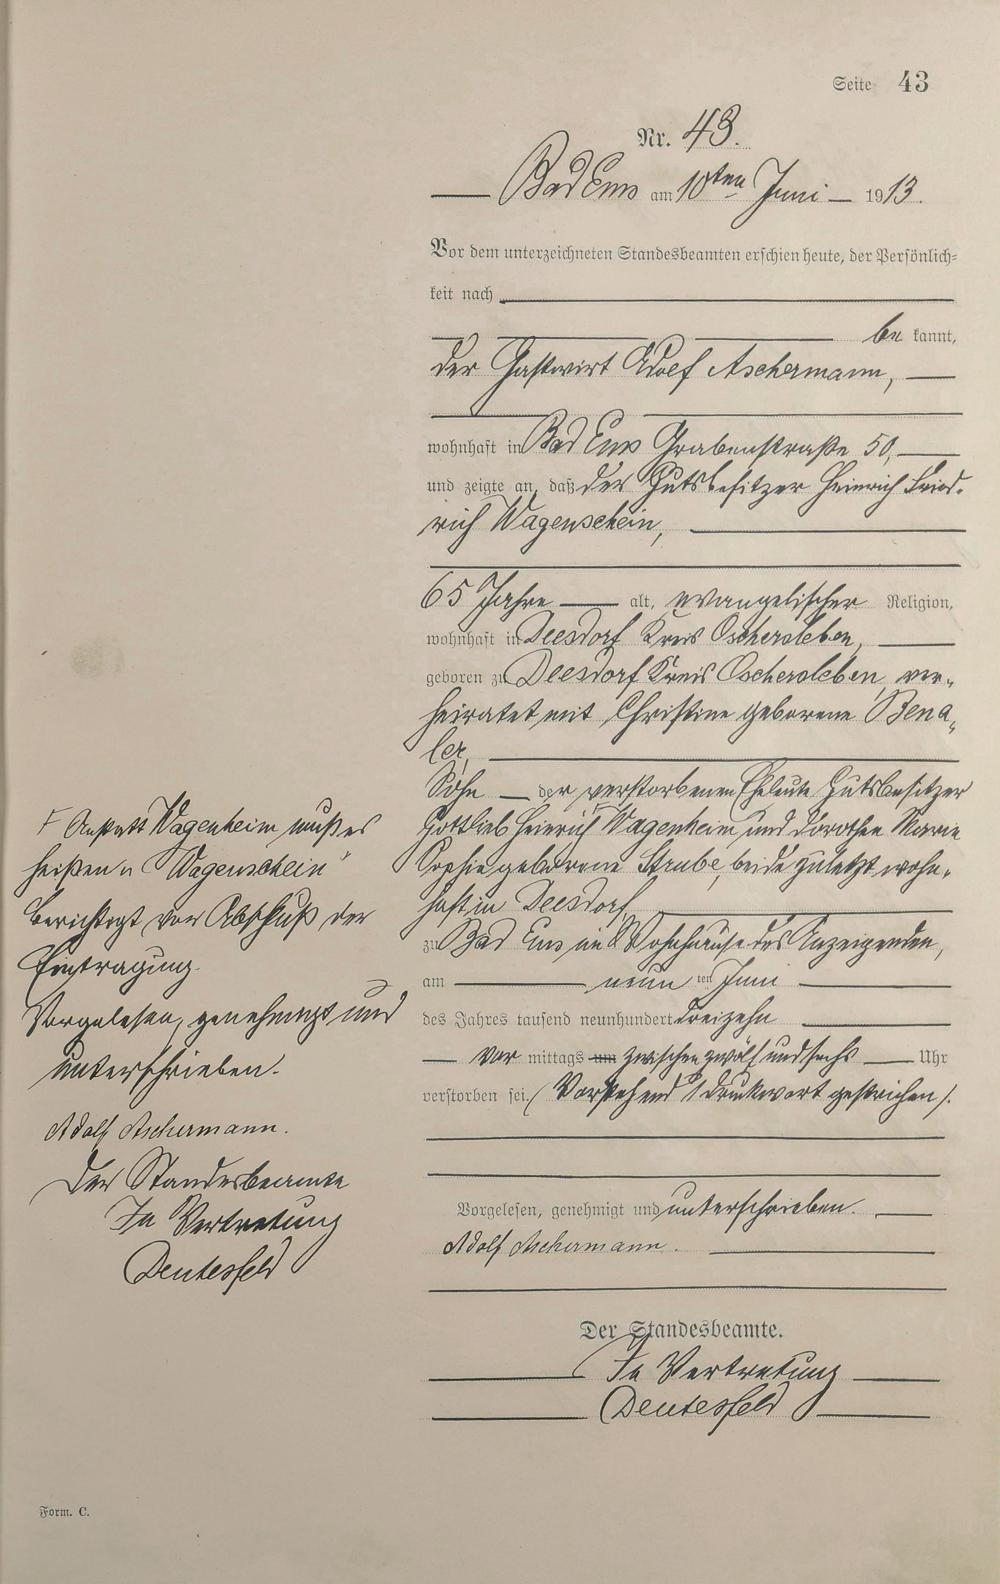 Seite 43
Nr. 43.
Bad Ems am 10ten Juni 1913.
Vor dem unterzeichneten Standesbeamten erschien heute, der Persönlich=
keit nach
be kannt,
der Gastwirt Adolf Aschermann,
wohnhaft in Bad Ems Grabenstraße 50,
und zeigte an, daß der Gutsbesitzer Heinrich Fried-
rich Wagenschein,
65 Jahre alt, evangelischer Religion,
wohnhaft in Deesdorf Kreis Oschersleben,
geboren zu Deesdorf Kreis Oschersleben, ver-
heiratet mit Christine geborene
Sohn der verstorbenen Eheleute Gutsbesitzer
Gottlieb Heinrich Wagenheim und Dorothee Marie
Sophie geborene Strube, beide zuletzt wohn-
haft in Deesdorf,
zu Bad Ems im Wohnhause des Anzeigenden,
am neun ten Juni
des Jahres tausend neunhundert dreizehn
vor mittags um zwischen zwölf und sechs Uhr
verstorben sei. (Vorstehend 1 Druckwort gestrichen).
Vorgelesen, genehmigt und unterschrieben.
Adolf Aschermann.
Der Standesbeamte.
In Vertretung
Deutesfeld
Anstatt Wagenheim muß es
heißen „Wagenschein"
berichtigt vor Abschluß der
Eintragung.
Vorgelesen, genehmigt und
unterschrieben.
Adolf Aschermann.
Der Standesbeamte
In Vertretung
Deutesfeld
Form. C.